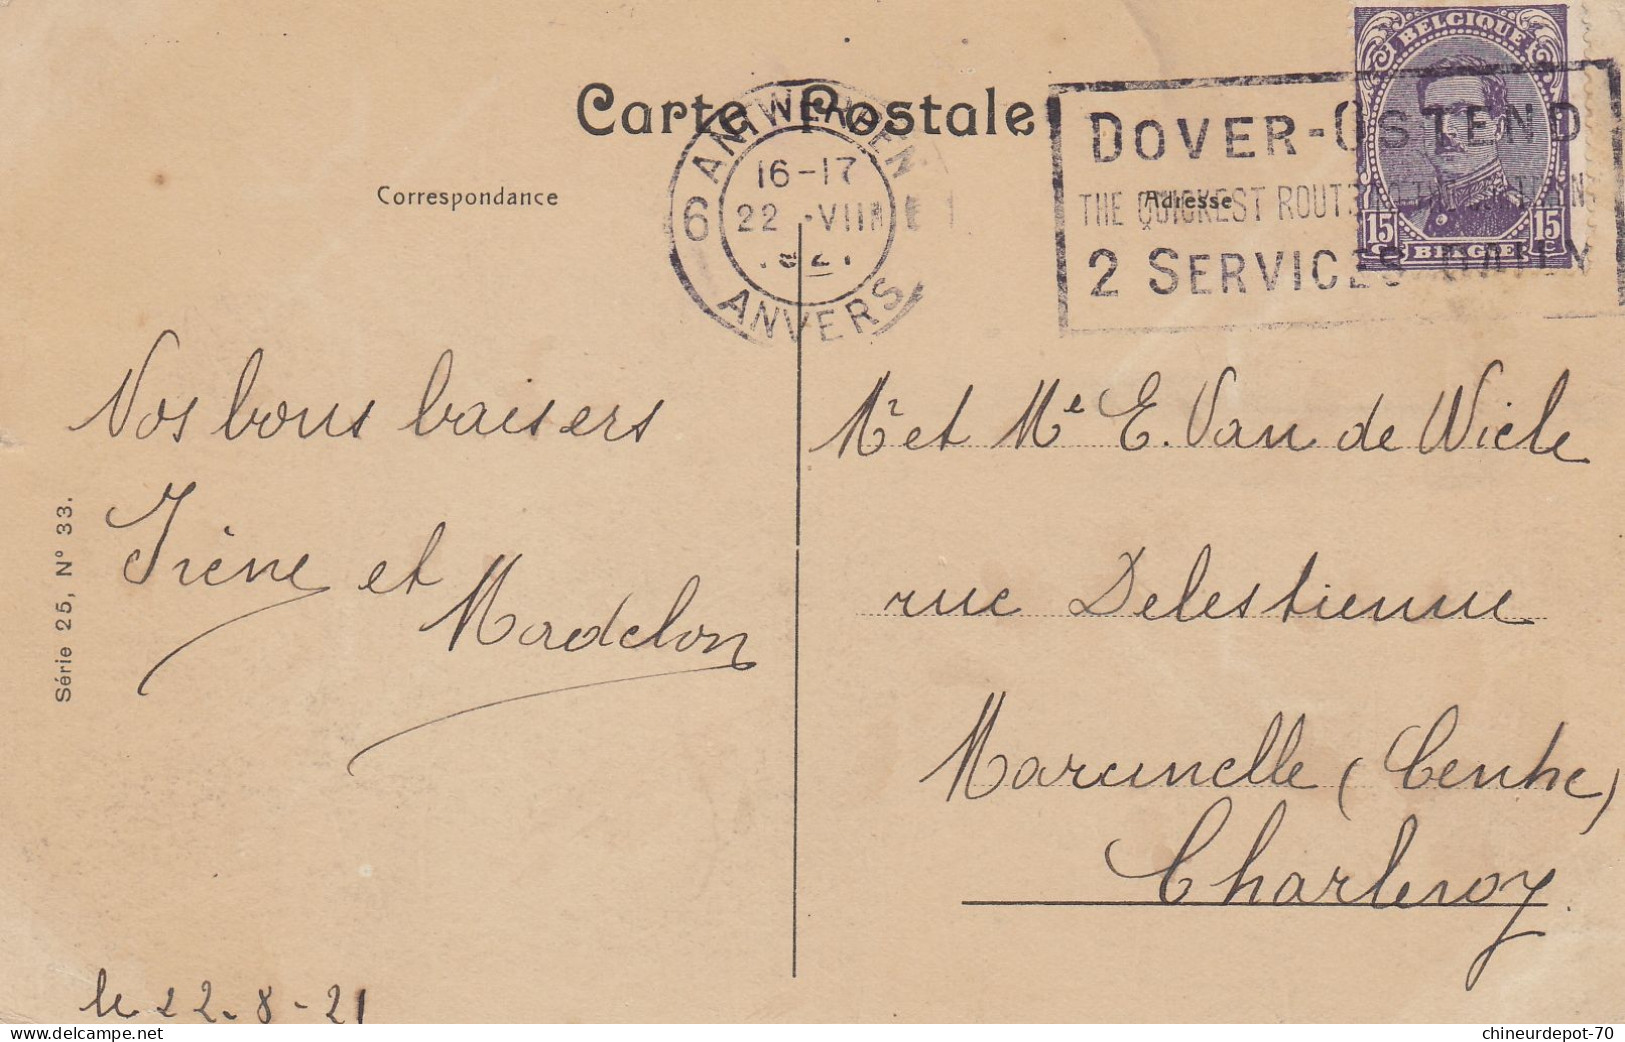 Carte Postale
Correspondance
Adresse
ANTWERPEN
6
16-17
22 VIII
1921
ANVERS
DOVER-OSTEND
THE QUICKEST ROUTE TO THE
2 SERVICES DAILY
BELGIQUE
15 15
BELGIE
Nos bons baisers
Irène et
Madelon
le 22-8-21
Mr et Me E. Van de Wiele
rue Delestienne
Marcinelle (Centre)
Charleroy
Série 25, N° 33.
chineurdepot-70